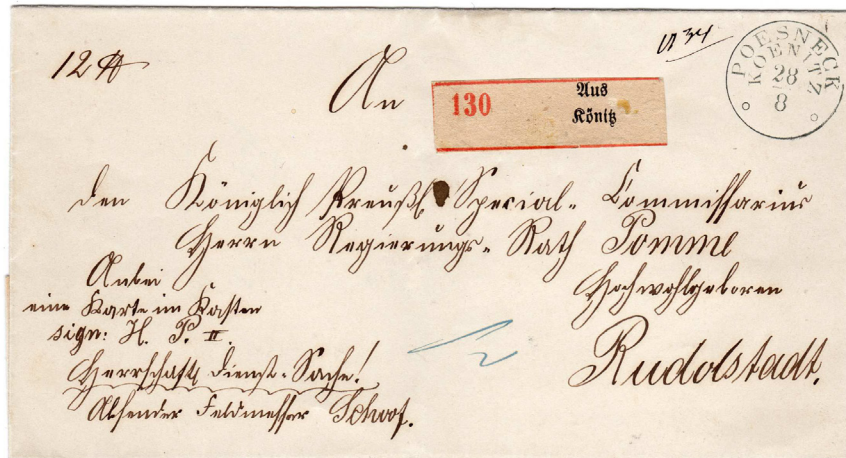 12 ℔
An
130
Aus
Könitz
POESNECK
KOENITZ
28
8
den Königlich Preuß. Special-Commissarius
Herrn Regierungs-Rath Pomme
Hochwohlgeboren
Rudolstadt.
Anbei
eine Karte im Kasten
sign: H. P. II.
Herrschaftl. Dienst-Sache!
Absender Feldmesser Schoof.